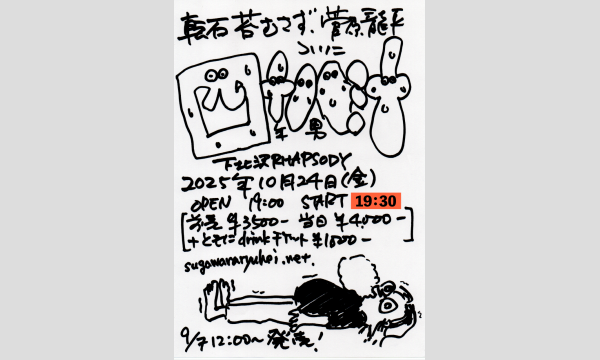 転石苔むさず、菅原龍平
ついに
年男
下北沢RHAPSODY
2025年10月24日(金)
OPEN 19:00 START 19:30
前売 ¥3500- 当日 ¥4,000-
+ともにdrinkチケット ¥1000-
sugawararyuhei.net.
9/7 12:00~発売!